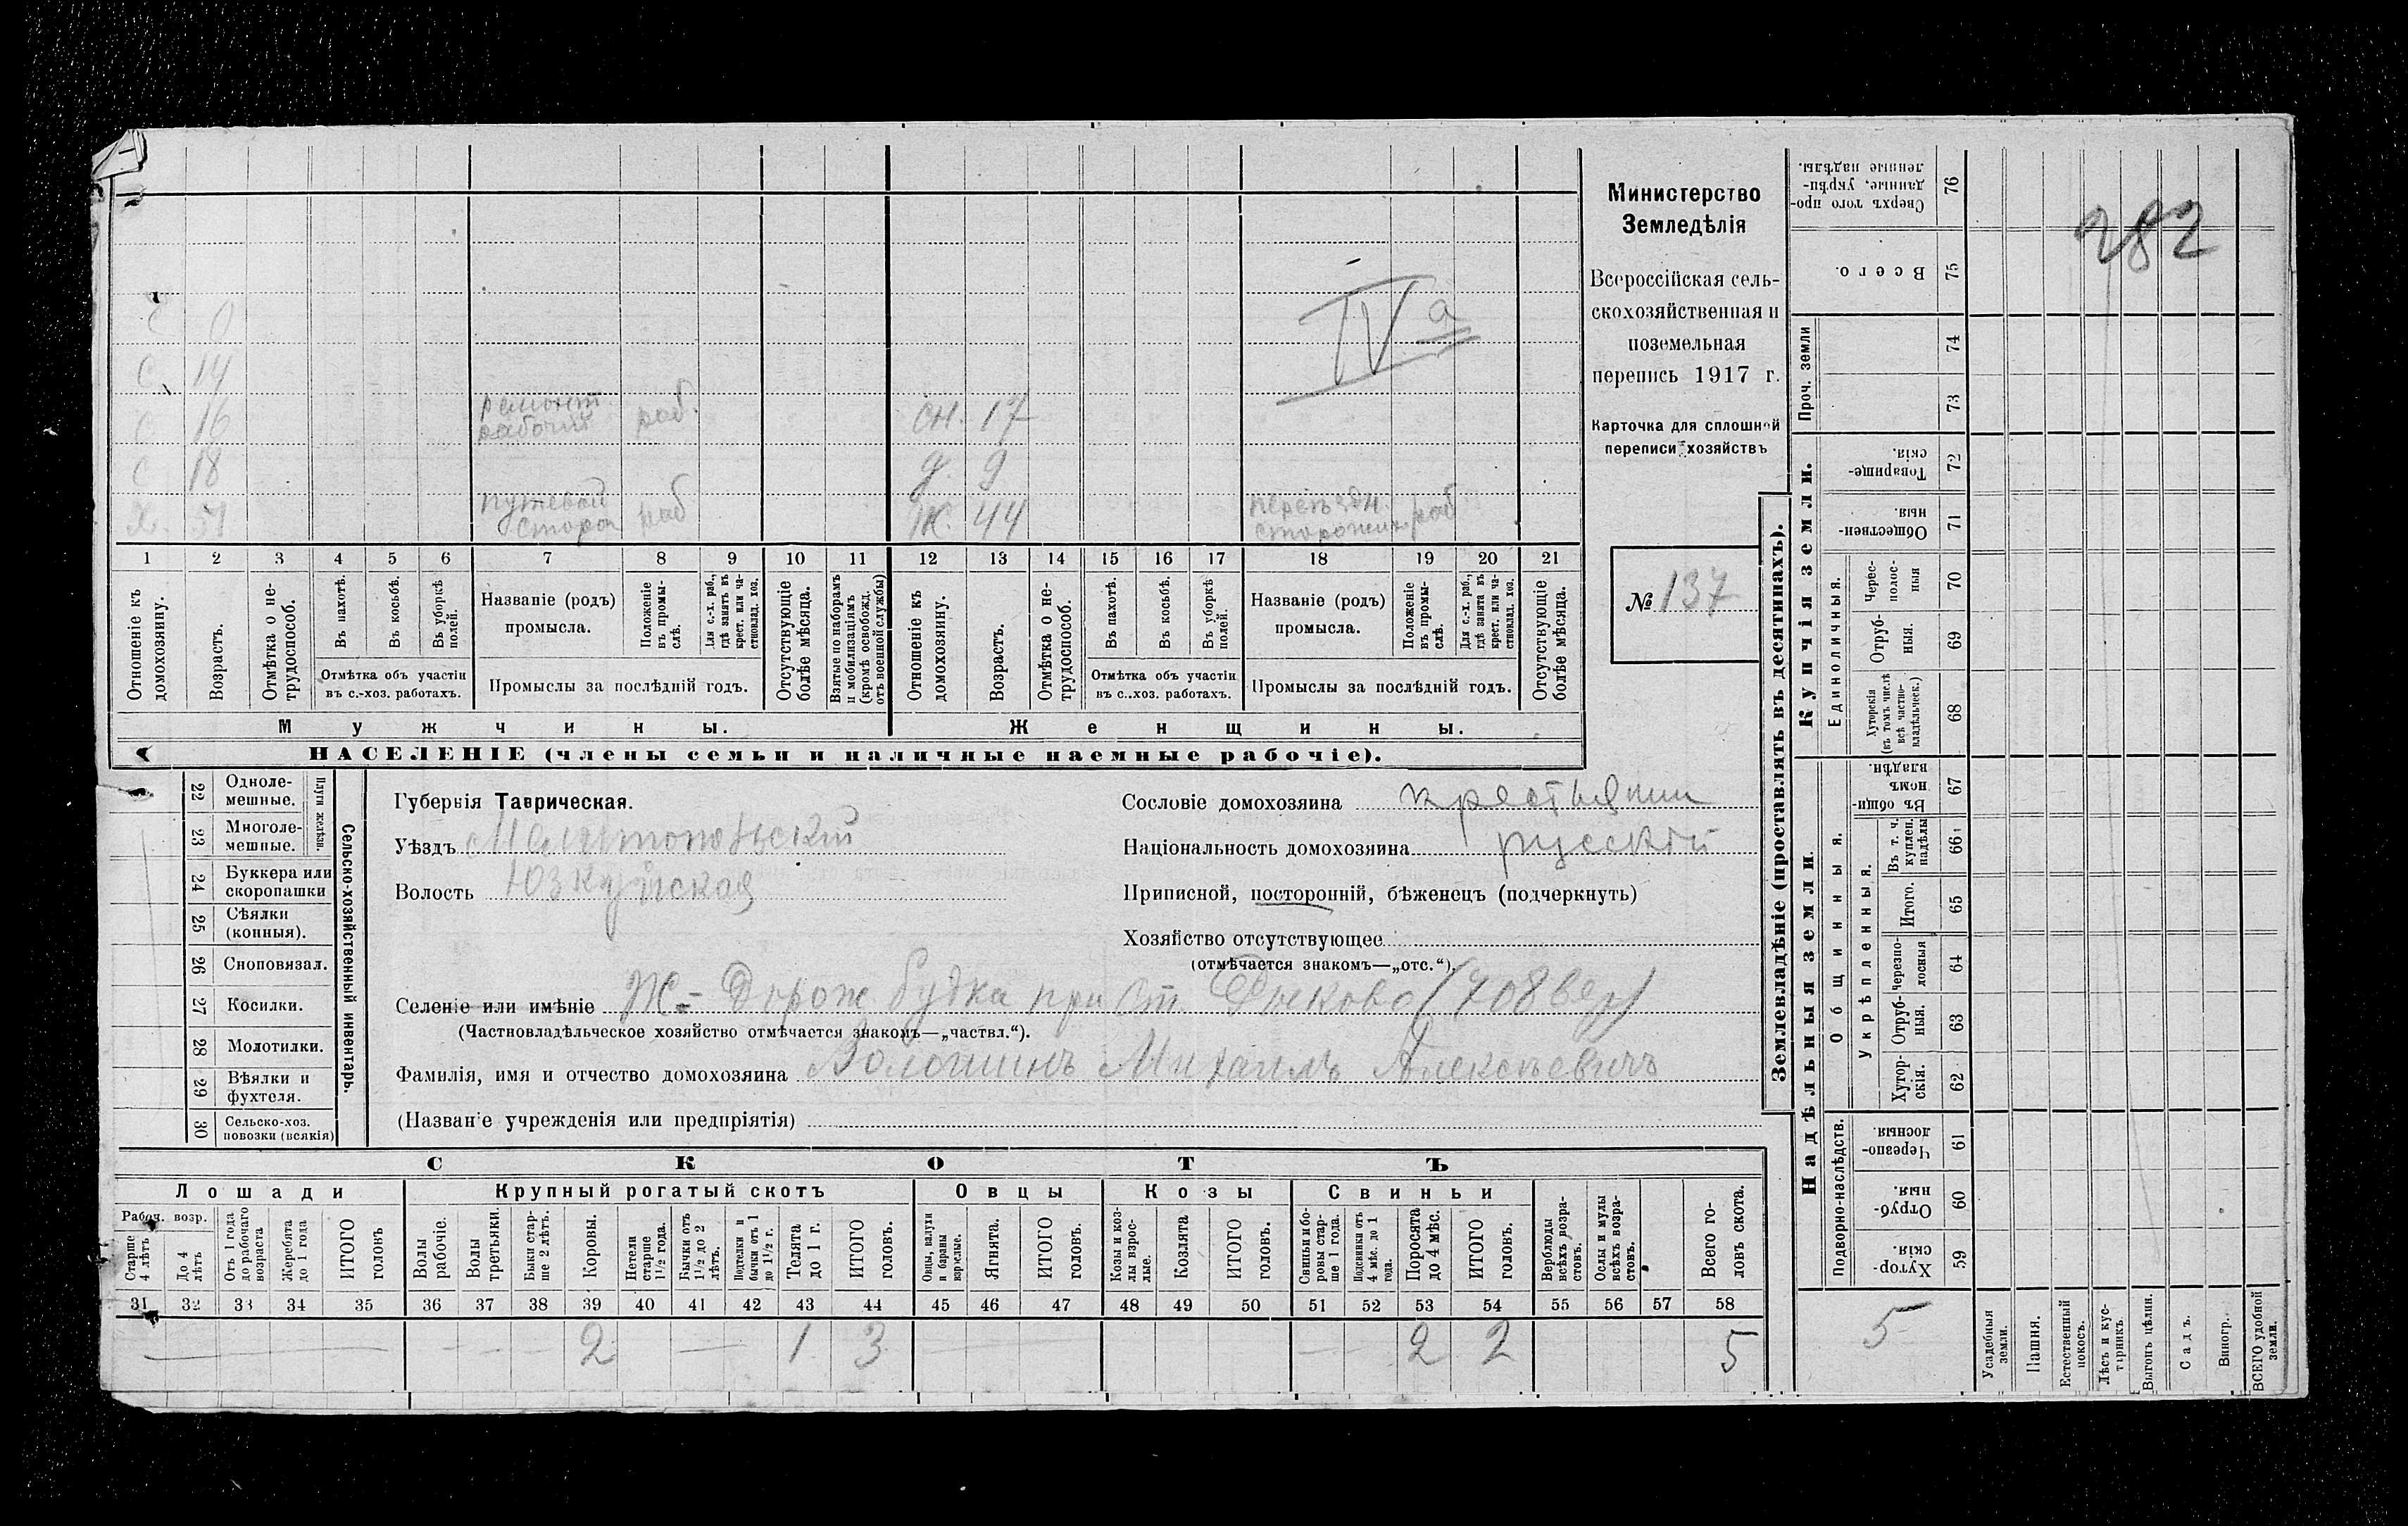 Министерство
Земледѣлія
Всероссійская сель-
скохозяйственная и
поземельная
перепись 1917 г.
Карточка для сплошной
переписи хозяйствъ
№ 137
282
IV а
С 0
С 14
С 16 ремонт рабочий раб. сн. 17
С 18 д. 9
Х. 51 путевой сторож раб Ж. 44 переездн. сторожих. раб
1 2 3 4 5 6 7 8 9 10 11 12 13 14 15 16 17 18 19 20 21
Отношеніе къ домохозяину.
Возрастъ.
Отмѣтка о не-трудоспособ.
Въ пахотѣ.
Въ косьбѣ.
Въ уборкѣ полей.
Отмѣтка объ участіи въ с.-хоз. работахъ.
Названіе (родъ) промысла.
Положеніе въ промы-слѣ.
Для с.-х. раб., гдѣ занятъ въ крест. или ча-стновлад. хоз.
Промыслы за послѣдній годъ.
Отсутствующіе болѣе мѣсяца.
Взятые по наборамъ и мобилизаціямъ (кромѣ освобожд. отъ военной службы)
Отношеніе къ домохозяину.
Возрастъ.
Отмѣтка о не-трудоспособ.
Въ пахотѣ.
Въ косьбѣ.
Въ уборкѣ полей.
Отмѣтка объ участіи въ с.-хоз. работахъ.
Названіе (родъ) промысла.
Положеніе въ промы-слѣ.
Для с.-х. раб., гдѣ занята въ крест. или ча-стновлад. хоз.
Промыслы за послѣдній годъ.
Отсутствующіе болѣе мѣсяца.
Мужчины. Женщины.
НАСЕЛЕНІЕ (члены семьи и наличные наемные рабочіе).
Сельско-хозяйственный инвентарь.
Плуги желѣзн.
22 Одноле-мешные.
23 Многоле-мешные.
24 Буккера или скоропашки
25 Сѣялки (конныя).
26 Сноповязал.
27 Косилки.
28 Молотилки.
29 Вѣялки и фухтеля.
30 Сельско-хоз. повозки (всякія)
Губернія Таврическая.
Уѣздъ Мелитопольский
Волость Юзкуйская
Сословіе домохозяина крестьянин
Національность домохозяина русский
Приписной, посторонній, бѣженецъ (подчеркнуть)
Хозяйство отсутствующее
(отмѣчается знакомъ—„отс.“).
Селеніе или имѣніе Ж=Дорож. будка при ст. Рыково (708 вер)
(Частновладѣльческое хозяйство отмѣчается знакомъ—„частвл.“).
Фамилія, имя и отчество домохозяина Волошинъ Михаилъ Алексѣевичъ
(Названіе учрежденія или предпріятія)
СКОТЪ
Лошади Крупный рогатый скотъ Овцы Козы Свиньи
Рабоч. возр.
Старше 4 лѣтъ
До 4 лѣтъ
Отъ 1 года до рабочаго возраста
Жеребята до 1 года
ИТОГО головъ
Волы рабочіе.
Волы третьяки.
Быки стар-ше 2 лѣтъ.
Коровы.
Нетели старше 1½ года.
Бычки отъ 1½ до 2 лѣтъ.
Подтелки и бычки отъ 1 до 1½ г.
Телята до 1 г.
ИТОГО головъ.
Овцы, валухи и бараны взрослые.
Ягнята.
ИТОГО головъ.
Козы и коз-лы взрос-лые.
Козлята
ИТОГО головъ.
Свиньи и бо-ровы стар-ше 1 года.
Подсвинки отъ 4 мѣс. до 1 года.
Поросята до 4 мѣс.
ИТОГО головъ.
Верблюды всѣхъ возра-стовъ.
Ослы и мулы всѣхъ возра-стовъ.
Всего го-ловъ скота.
31 32 33 34 35 36 37 38 39 40 41 42 43 44 45 46 47 48 49 50 51 52 53 54 55 56 57 58
2 1 3 2 2 5
Землевладѣніе (проставлять въ десятинахъ).
Надѣльныя земли.
Купчія земли.
Проч. земли
Подворно-наслѣдств.
Общинныя.
Укрѣпленныя.
Единоличныя.
Хутор-скія. 59
Отруб-ныя. 60
Черезпо-лосныя. 61
Хутор-скія. 62
Отруб-ныя. 63
Черезпо-лосныя 64
Итого. 65
Въ т. ч. куплен. надѣлы 66
Въ общи-номъ владѣн. 67
Хуторскія (въ томъ числѣ всѣ частно-владѣльческ.) 68
Отруб-ныя. 69
Черес-полос-ныя 70
Обществен-ныя. 71
Товарище-скія. 72
73
74
Всего. 75
Сверхъ того про-данные, укрѣп-ленные надѣлы. 76
5
Усадебныя земли.
Пашня.
Естественный покосъ.
Лѣсъ и кус-тарникъ.
Выгонъ цѣлин.
Садъ.
Виногр.
ВСЕГО удобной земли.